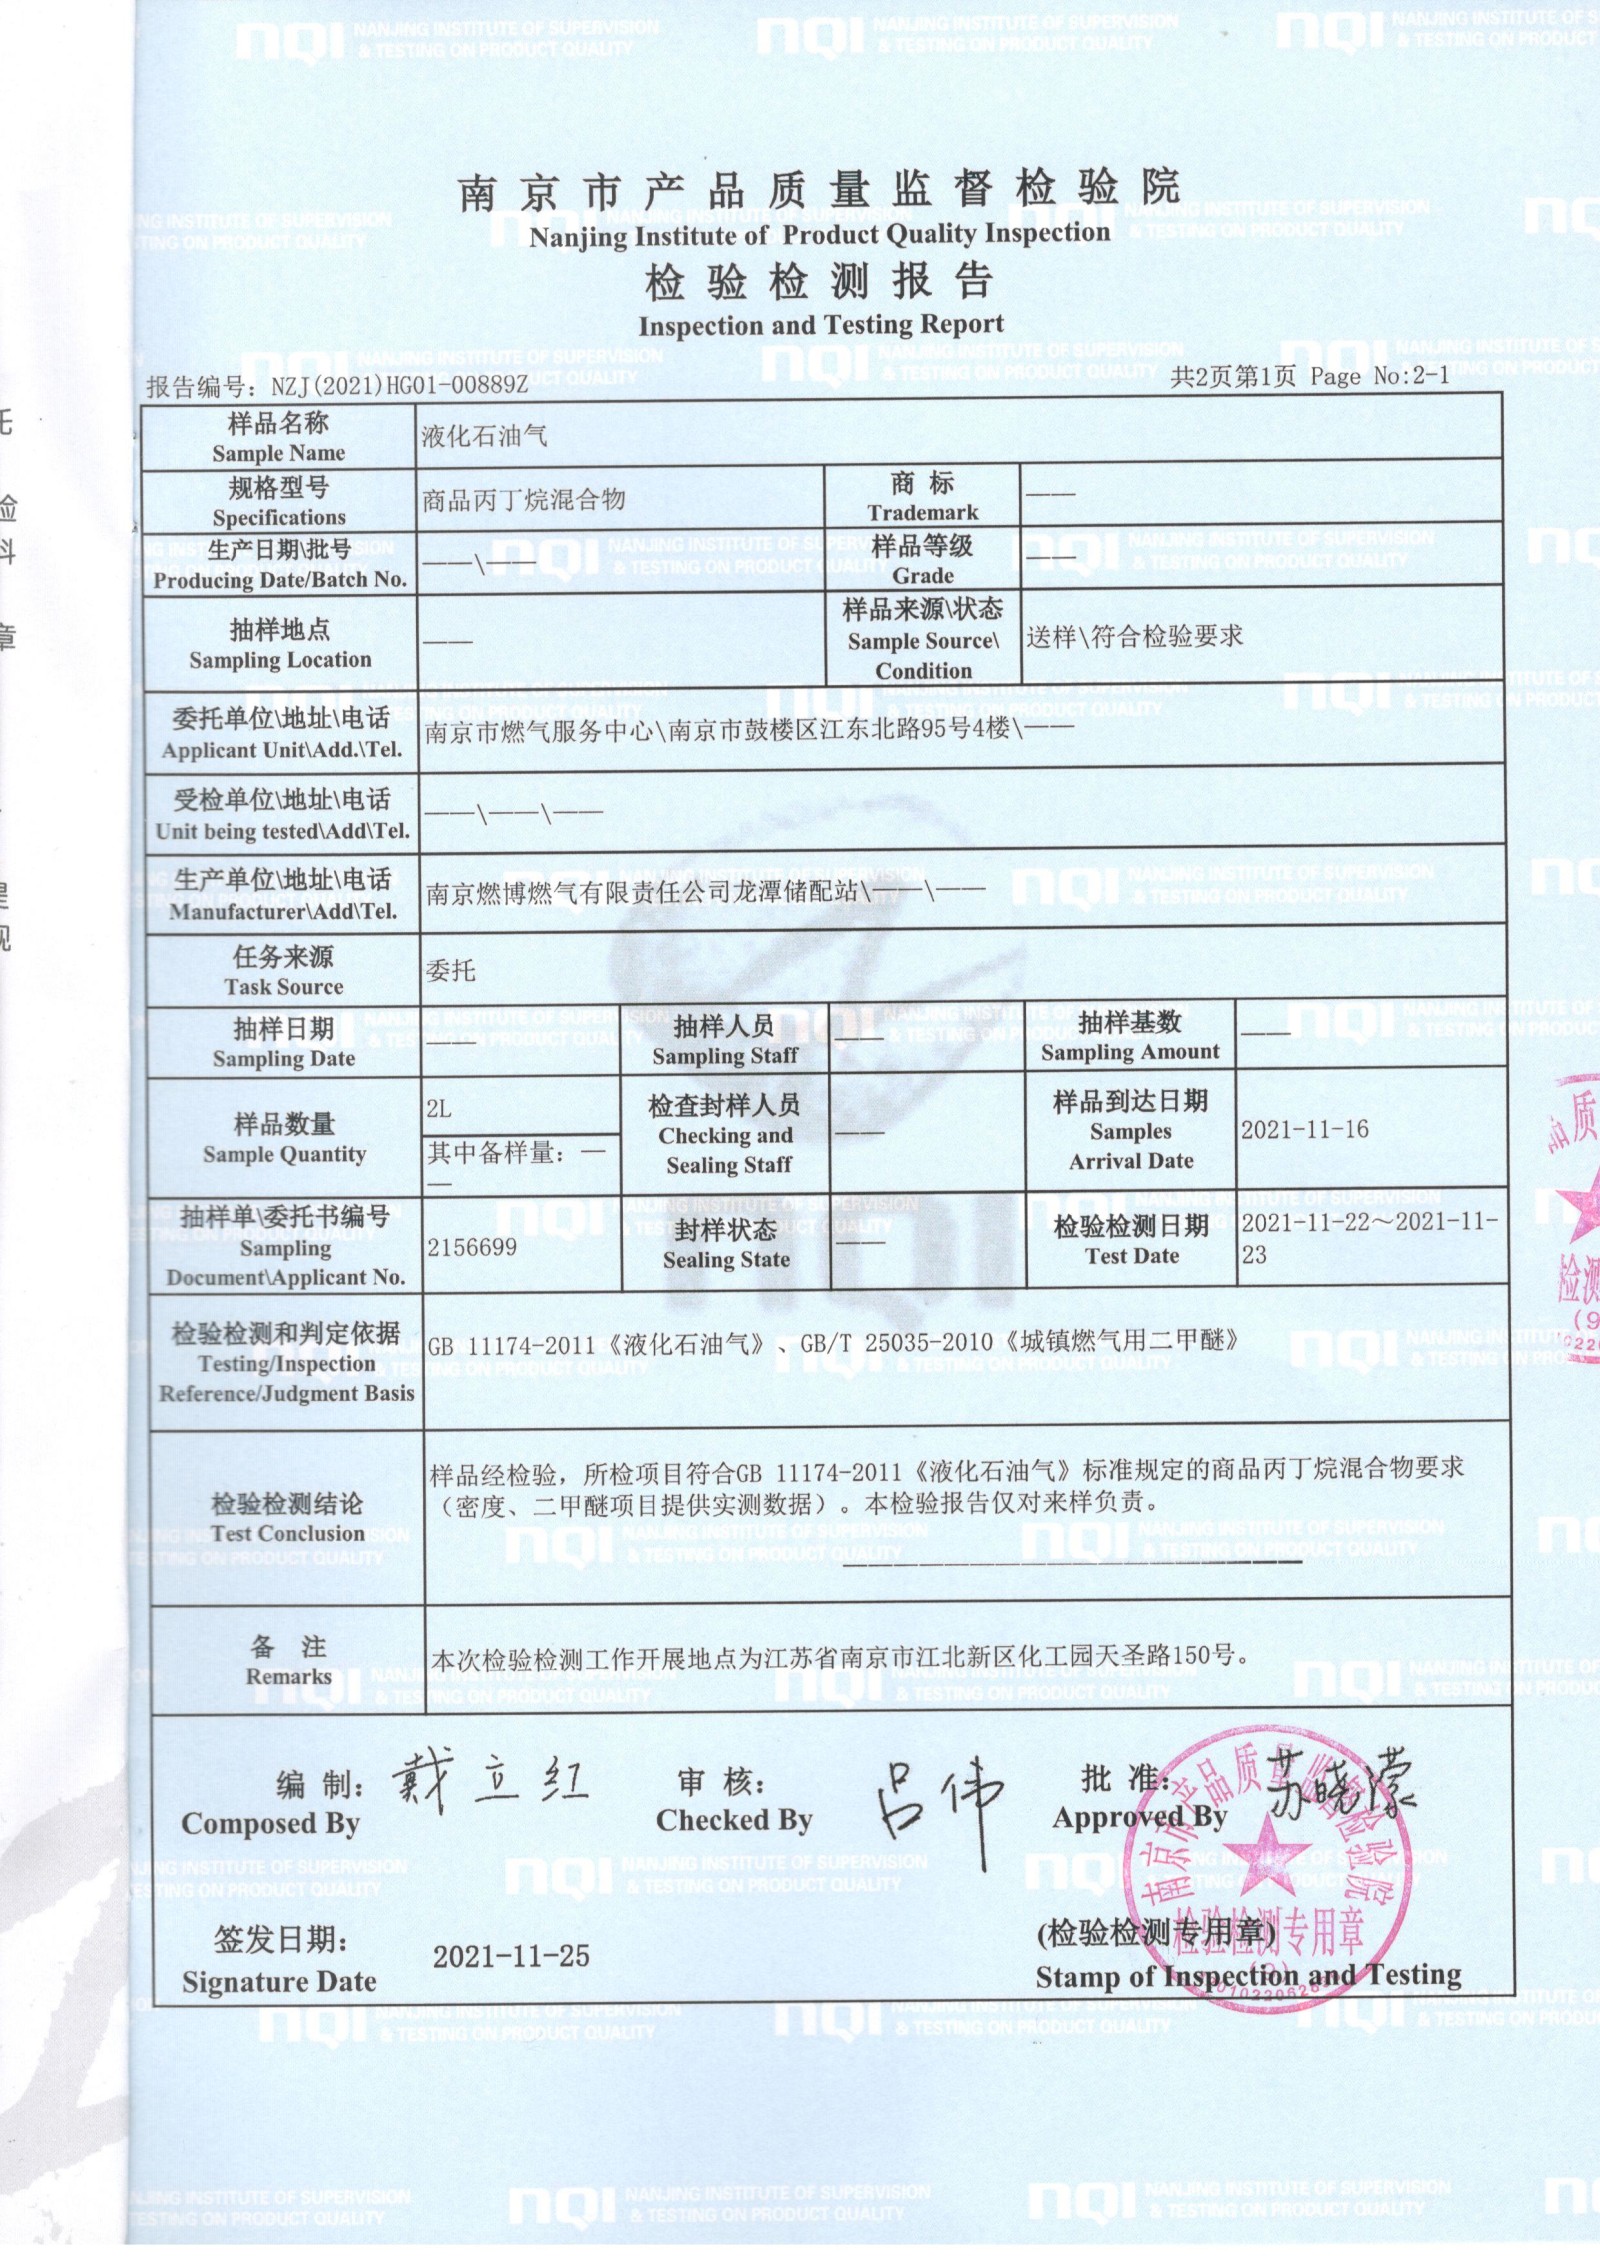 南京市产品质量监督检验院
Nanjing Institute of Product Quality Inspection
检验检测报告
Inspection and Testing Report
报告编号：NZJ(2021)HG01-00889Z
共2页第1页 Page No:2-1
样品名称
Sample Name
液化石油气
规格型号
Specifications
商品丙丁烷混合物
商 标
Trademark
——
生产日期\批号
Producing Date/Batch No.
——\——
样品等级
Grade
——
抽样地点
Sampling Location
——
样品来源\状态
Sample Source\
Condition
送样\符合检验要求
委托单位\地址\电话
Applicant Unit\Add.\Tel.
南京市燃气服务中心\南京市鼓楼区江东北路95号4楼\——
受检单位\地址\电话
Unit being tested\Add\Tel.
——\——\——
生产单位\地址\电话
Manufacturer\Add\Tel.
南京燃博燃气有限责任公司龙潭储配站\——\——
任务来源
Task Source
委托
抽样日期
Sampling Date
——
抽样人员
Sampling Staff
——
抽样基数
Sampling Amount
——
样品数量
Sample Quantity
2L
其中备样量：—
—
检查封样人员
Checking and
Sealing Staff
——
样品到达日期
Samples
Arrival Date
2021-11-16
抽样单\委托书编号
Sampling
Document\Applicant No.
2156699
封样状态
Sealing State
——
检验检测日期
Test Date
2021-11-22～2021-11-
23
检验检测和判定依据
Testing/Inspection
Reference/Judgment Basis
GB 11174-2011《液化石油气》、GB/T 25035-2010《城镇燃气用二甲醚》
检验检测结论
Test Conclusion
样品经检验，所检项目符合GB 11174-2011《液化石油气》标准规定的商品丙丁烷混合物要求
（密度、二甲醚项目提供实测数据）。本检验报告仅对来样负责。
备 注
Remarks
本次检验检测工作开展地点为江苏省南京市江北新区化工园天圣路150号。
编 制：
Composed By
戴立红
审 核：
Checked By
吕伟
批 准：
Approved By
苏晓濛
签发日期：
Signature Date
2021-11-25
(检验检测专用章)
Stamp of Inspection and Testing
南京市产品质量监督检验院
检验检测专用章
nqi
NANJING INSTITUTE OF SUPERVISION
& TESTING ON PRODUCT QUALITY